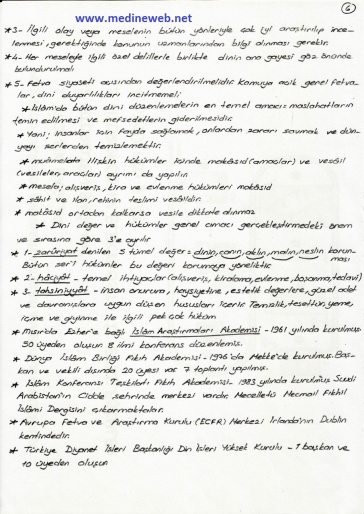 www.medineweb.net
6
* 3- İlgili olay veya meselenin bütün yönleriyle çok iyi araştırılıp ince-
lenmesi, gerektiğinde konunun uzmanlarından bilgi alınması gerekir.
* 4- Her meseleyle ilgili özel delillerle birlikte dinin ana gayesi göz önünde
bulundurulmalı
* 5- Fetva siyaseti açısından değerlendirilmelidir. Kamuya açık genel fetva-
lar, dini duyarlılıkları incitmemeli
* İslâm'da bütün dini düzenlemelerin en temel amacı: maslahatların
temin edilmesi ve mefsedetlerin giderilmesidir.
* Yani; insanlar için fayda sağlamak, onlardan zararı savmak ve dün-
yayı şerlerden temizlemektir.
* muamelata ilişkin hükümler içinde makâsıd (amaçlar) ve vesâil
(vesileler, araçlar) ayrımı da yapılır.
* mesela; alışveriş, kira ve evlenme hükümleri makâsıd
* şâhit ve ilan, rehinin teslimi vesâildir.
* makâsıd ortadan kalkarsa vesile dikkate alınmaz
* Dini değer ve hükümler genel amacı gerçekleştirmedeki önem
ve sırasına göre 3'e ayrılır
* 1- zarûriyat denilen 5 tümel değer = dinin, canın, aklın, malın, neslin korun-
ması
Bütün şer'i hükümler bu değeri korumaya yöneliktir.
* 2- hâciyât - temel ihtiyaçlar (alışveriş, kiralama, evlenme, boşanma, tedavi)
* 3- tahsîniyyât - insan onuruna, haysiyetine, estetik değerlere, güzel adet
ve davranışlara uygun düşen hususları içerir. Temizlik, tesettür, yeme,
içme ve giyinme ile ilgili pek çok hüküm
* Mısır'da Ezher'e bağlı İslâm Araştırmaları Akademisi - 1961 yılında kurulmuş.
50 üyeden oluşur 8 ilmi konferans düzenlemiş.
* Dünya İslâm Birliği Fıkıh Akademisi - 1976'da Mekke'de kurulmuş. Baş-
kan ve vekili dışında 20 üyesi var 7 toplantı yapılmış.
* İslâm Konferansı Teşkilatı Fıkıh Akademisi - 1983 yılında kurulmuş Suudi
Arabistan'ın Cidde şehrinde merkezi vardır. Mecelletü Mecmail Fıkhil
İslâmi Dergisini çıkarmaktalar.
* Avrupa Fetva ve Araştırma Kurulu (ECFR) Merkezi İrlanda'nın Dublin
kentindedir.
* Türkiye Diyanet İşleri Başkanlığı Din İşleri Yüksek Kurulu - 1 başkan ve
10 üyeden oluşur